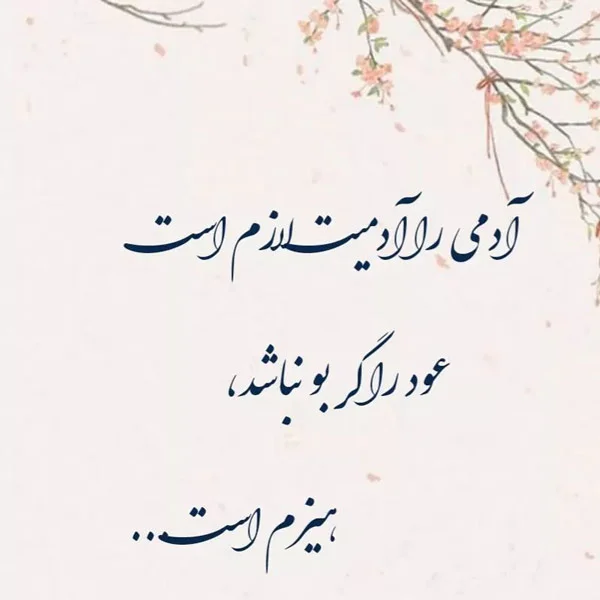 آدمی را آدمیت لازم است
عود را گر بو نباشد،
هیزم است...